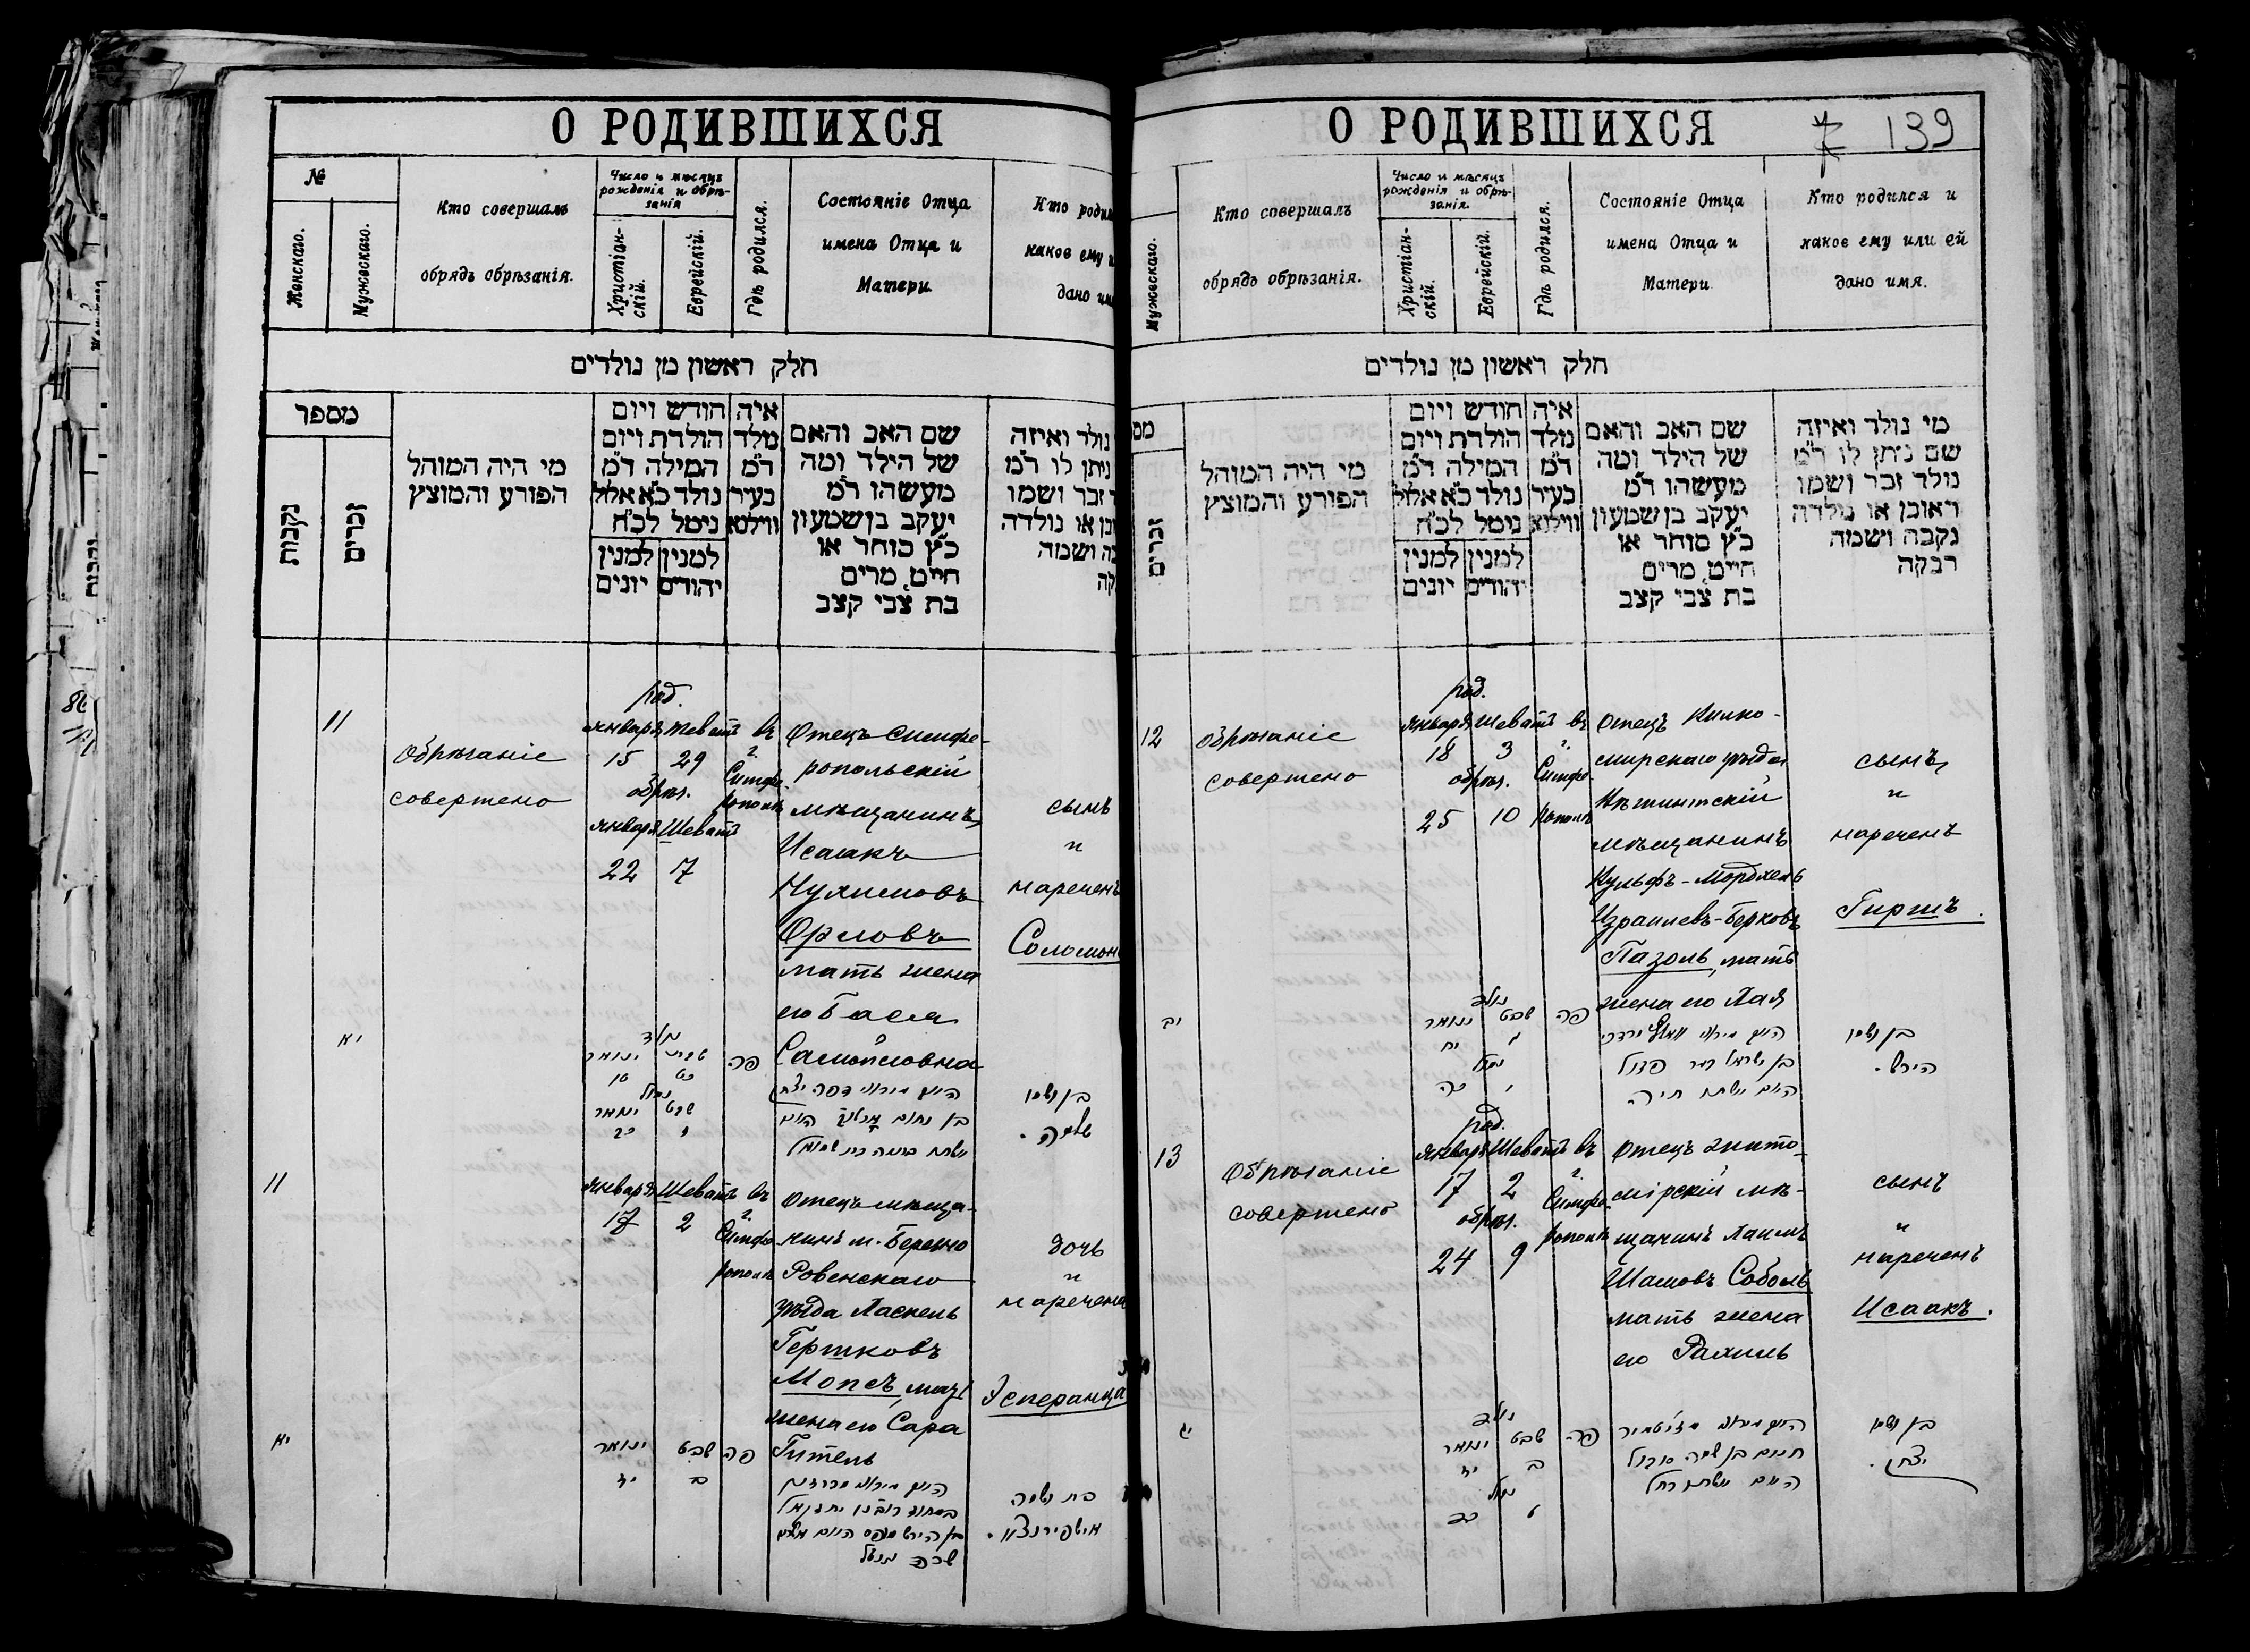 О РОДИВШИХСЯ
№
Женскаго.
Мужескаго.
Кто совершалъ
обрядъ обрѣзанія.
Число и мѣсяцъ
рожденія и обрѣ-
занія
Христіан-
скій.
Еврейскій.
Гдѣ родился.
Состояніе Отца
имена Отца и
Матери
Кто роди
какое ему и
дано им
חלק ראשון מן נולדים
מספר
נקבות
זכרים
מי היה המוהל
הפורע והמוצץ
חודש ויום
הולדת ויום
המילה ד״מ
נולד כ״א אלול
נימל לכ״ח
למנין
יהודים
למנין
יונים
איה
נולד
ד״מ
בעיר
ווילנא
שם האב והאם
של הילד ומה
מעשהו ד״מ
יעקב בן שמעון
כ״ץ סוחר או
חייט מרים
בת צבי קצב
נולד ואיזה
ניתן לו ד״מ
זכר ושמו
או נולדה
ושמה
11
Обрѣзаніе
совершено
род.
Января Шеватъ
15 29
обрѣз.
Января Шеватъ
22 7
въ
г.
Симфе-
рополѣ
Отецъ Симфе-
ропольскій
мѣщанинъ
Исаакъ
Нухимовъ
Орловъ
мать жена
его Бася
Самойловна
сынъ
и
нареченъ
Соломонъ
יא
נולד
שבט ינואר
כט טו
נימול
שבט ינואר
ז כב
פה
בן ושמו
שלמה.
11
Января Шеватъ
17 2
въ
г.
Симфе-
рополѣ
Отецъ мѣща-
нинъ м. Березно
Ровенскаго
уѣзда Хаскель
Гершковъ
Мопсъ, мать
жена его Сара
Гитель
дочь
и
наречена
Эсперанца
יא
שבט ינואר
ב יז
פה
בת ושמה
О РОДИВШИХСЯ
139
Мужескаго.
Кто совершалъ
обрядъ обрѣзанія.
Число и мѣсяцъ
рожденія и обрѣ-
занія.
Христіан-
скій.
Еврейскій.
Гдѣ родился.
Состояніе Отца
имена Отца и
Матери
Кто родился и
какое ему или ей
дано имя.
חלק ראשון מן נולדים
מס
זכרים
מי היה המוהל
הפורע והמוצץ
חודש ויום
הולדת ויום
המילה ד״מ
נולד כ״א אלול
נימל לכ״ח
למנין
יהודים
למנין
יונים
איה
נולד
ד״מ
בעיר
ווילנא
שם האב והאם
של הילד ומה
מעשהו ד״מ
יעקב בן שמעון
כ״ץ סוחר או
חייט מרים
בת צבי קצב
מי נולד ואיזה
שם ניתן לו ד״מ
נולד זכר ושמו
ראובן או נולדה
נקבה ושמה
רבקה
12
Обрѣзаніе
совершено
род.
Января Шеватъ
18 3
обрѣз.
25 10
въ
г.
Симфе-
рополѣ
Отецъ Вилко-
мирскаго уѣзда
мѣщанинъ
Израилевъ-Берковъ
Пазоль, мать
жена его Хая
сынъ
и
нареченъ
Гиршъ.
יב
נולד
שבט ינואר
ג יח
נימול
י כה
פה
בן ושמו
הירש.
13
Обрѣзаніе
совершено
род.
Января Шеватъ
17 2
обрѣз.
24 9
въ
г.
Симфе-
рополѣ
Отецъ жито-
мірскій мѣ-
щанинъ Хаимъ
Шамовъ Соболь
мать жена
его Рахиль
сынъ
и
нареченъ
Исаакъ.
יג
נולד
שבט ינואר
ב יז
נימול
ט כד
פה
בן ושמו
יצחק.